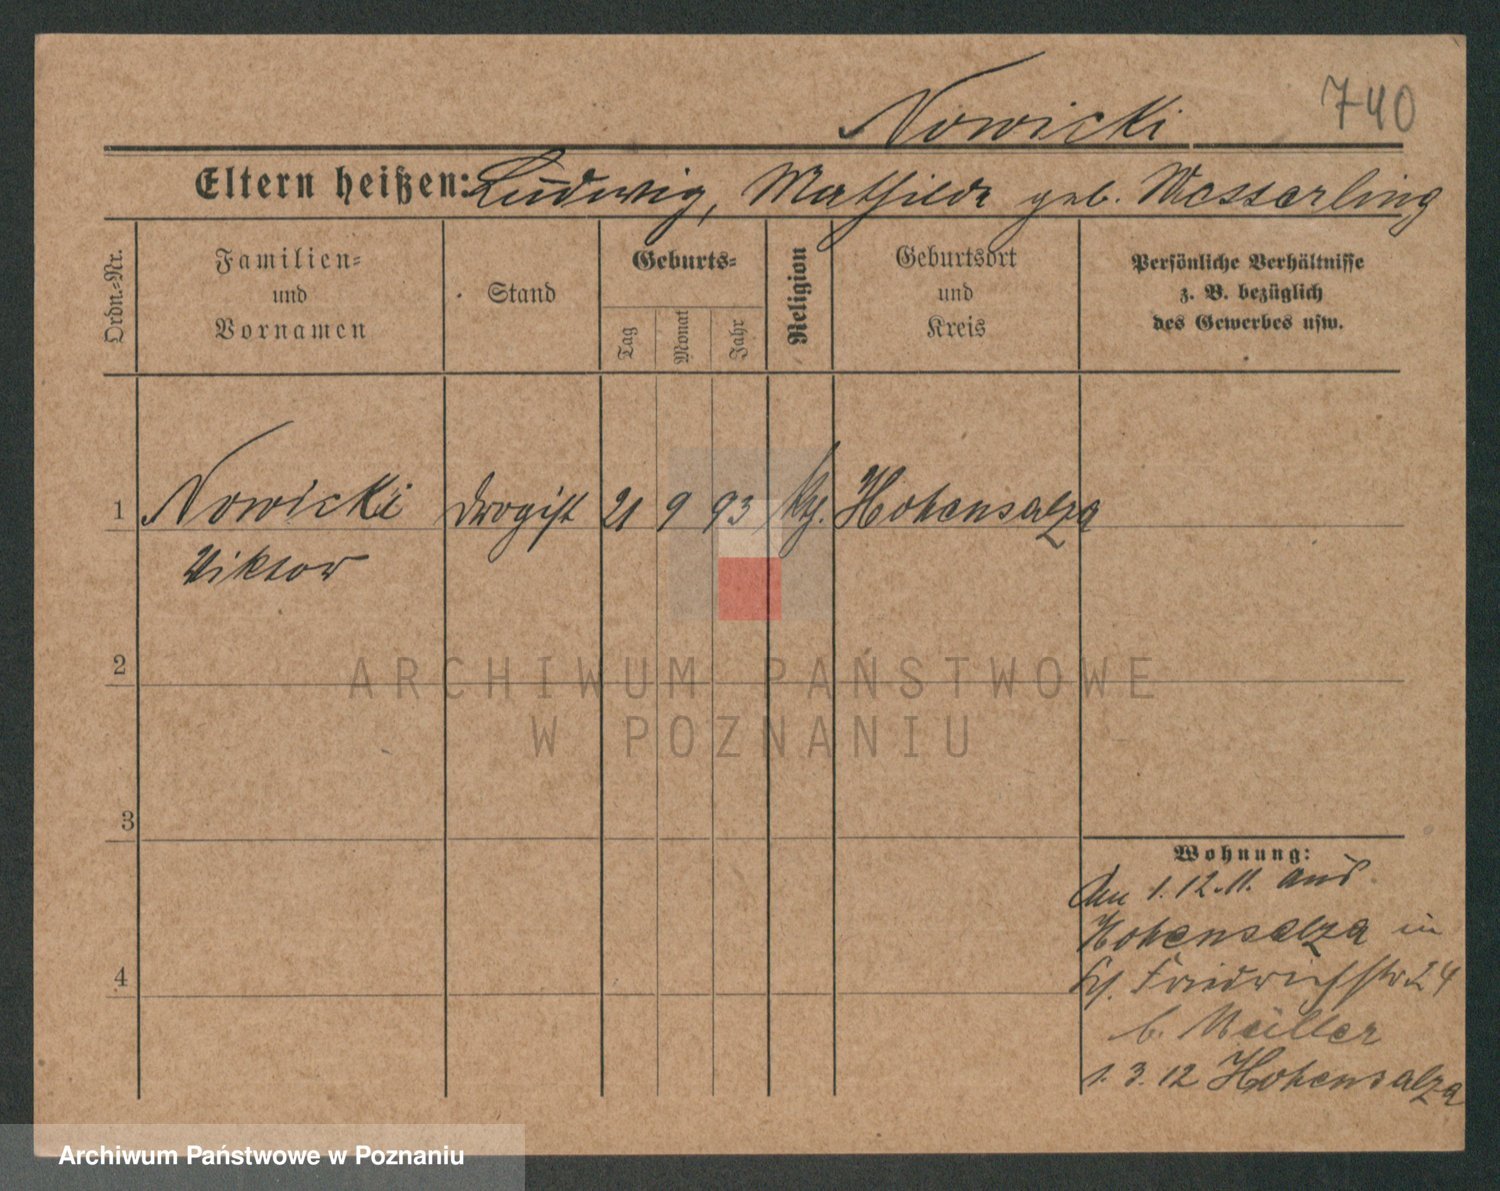 Nowicki 740
Eltern heißen: Ludwig, Mathilde geb. Wesserling
Ordn.-Nr.
Familien-
und
Vornamen
Stand
Geburts-
Tag
Monat
Jahr
Religion
Geburtsort
und
Kreis
Persönliche Verhältnisse
z. B. bezüglich
des Gewerbes usw.
1 Nowicki Drogist 21 9 93 Hohensalza
Viktor
2
ARCHIWUM PAŃSTWOWE
W POZNANIU
3
Wohnung:
Am 1.12.11. aus
Hohensalza in
4
Friedrichstr. 24
b. Müller
1.3.12 Hohensalza
Archiwum Państwowe w Poznaniu